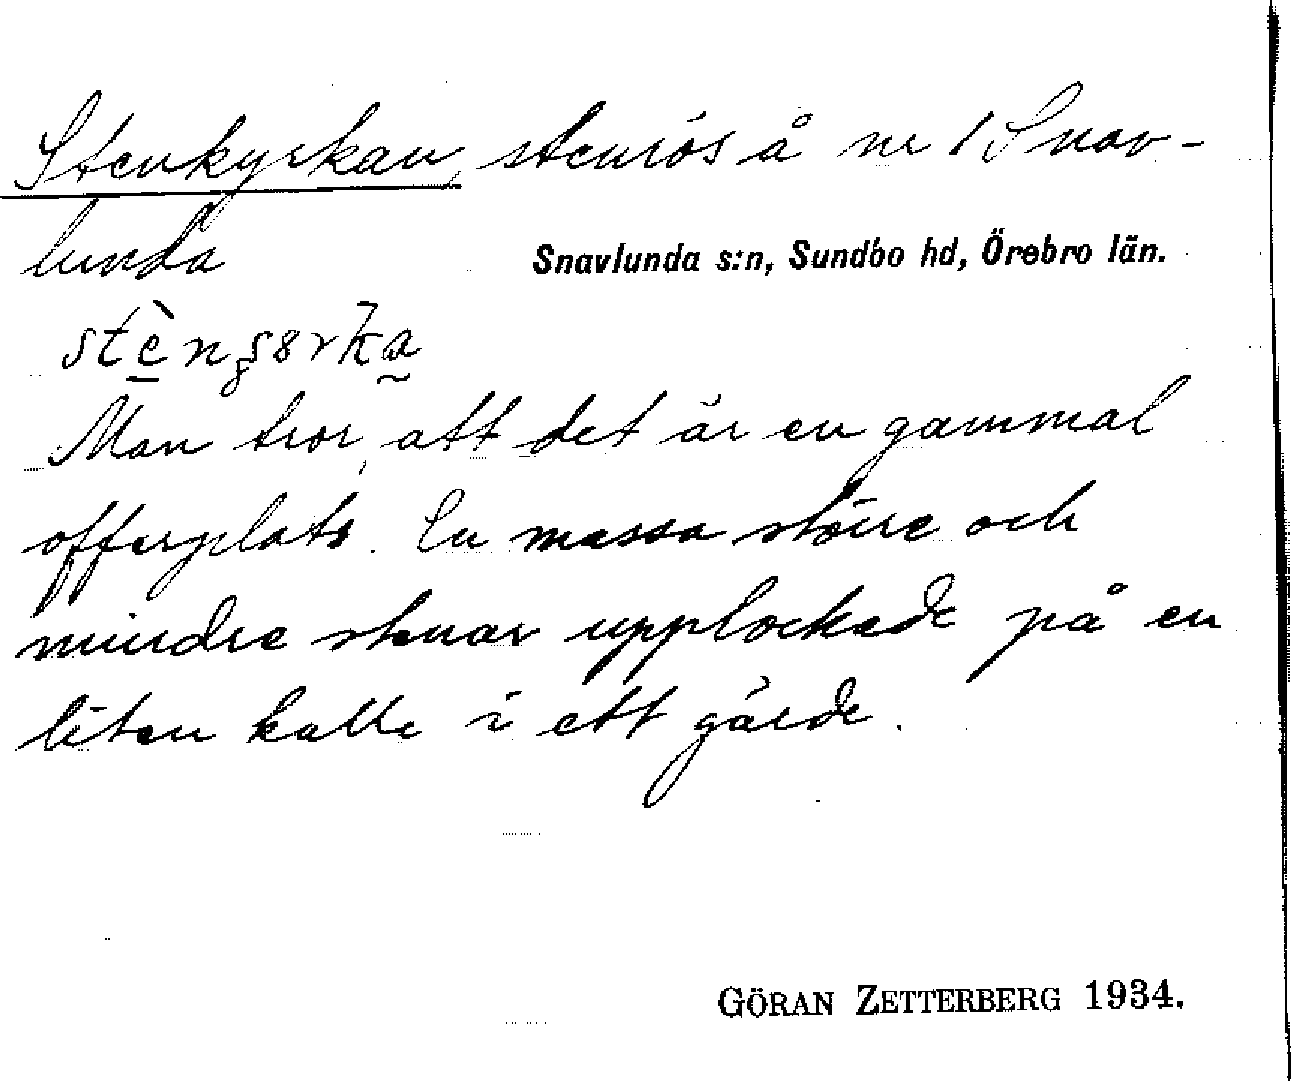 Stenkyrkan, stenrös å nr 1 Snav-
lunda
Snavlunda s:n, Sundbo hd, Örebro län.
Man tror, att det är en gammal
offerplats. En massa större och
mindre stenar upplockade på en
liten kulle i ett gärde.
GÖRAN ZETTERBERG 1934.